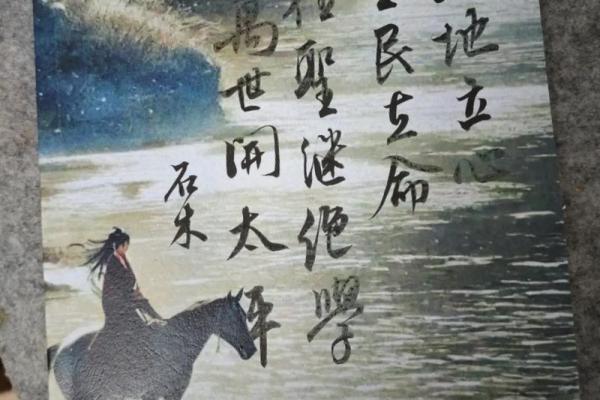 地立心
民立命
往聖继绝學
萬世開太平
石木